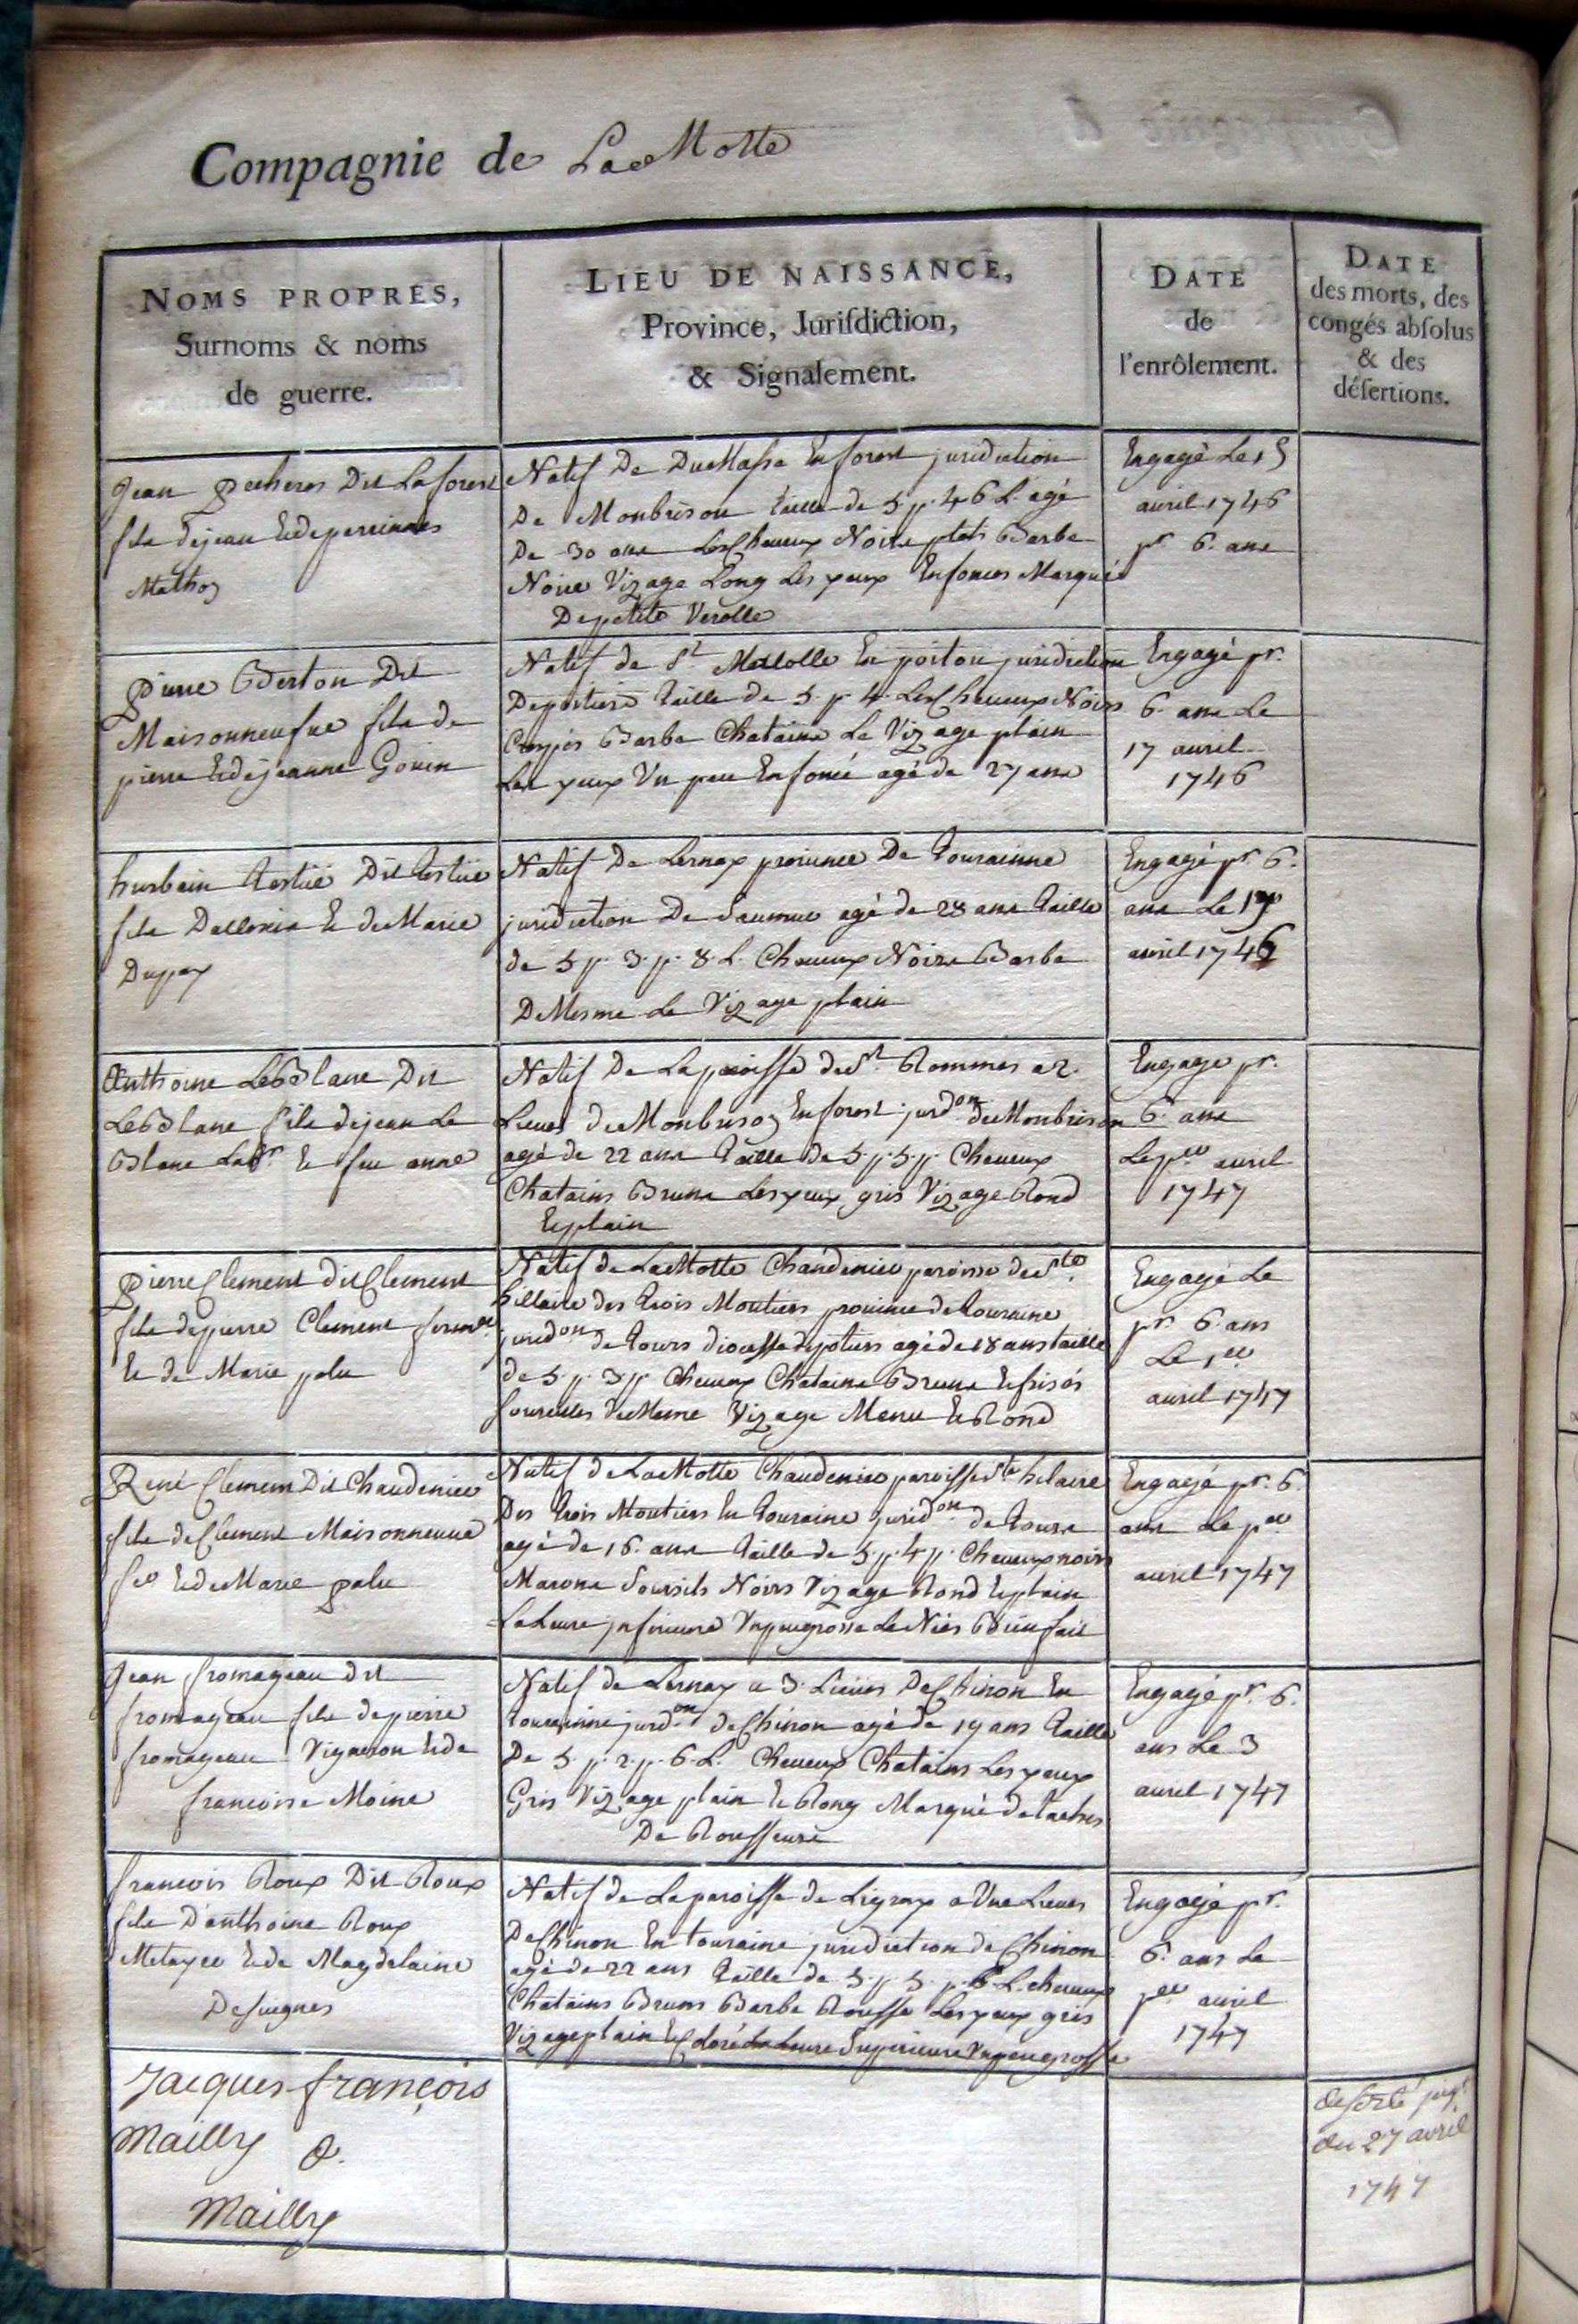 Compagnie de La Motte
NOMS PROPRES,
Surnoms & noms
de guerre.
LIEU DE NAISSANCE,
Province, Jurisdiction,
& Signalement.
DATE
de
l'enrôlement.
DATE
des morts, des
congés absolus
& des
désertions.
Jean Dit Laforest
fils de jean Et de perrinnes
Mathos
Natif De En forest juridiction
De Monbrison taille de 5 p. 4 6 L. agé
De 30 ans Les Cheveux Noirs plats Barbe
Noire Vizage Long Les yeux Enfonces Marqué
De petite Verolle
Engagé Le 15
avril 1746
pr. 6. ans
pierre Berton Dit
Maisonneufve fils de
pierre Et de jeanne Gouin
Natif de St. En poitou juridiction
De poitiers taille de 5. p 4. Les Cheveux Noirs
Crespés Barbe Chataine Le Vizage plain
Les yeux Un peu Enfoncé agé de 27 ans
Engagé pr.
6. ans Le
17 avril
1746
hurbain Dit
fils Et de Marie
Dupay
Natif De Lernay province De tourainne
juridiction De Saumur agé de 28 ans taille
de 5 p. 3. p. 8. L. Cheveux Noirs Barbe
De Mesme Le Vizage plain
Engagé pr. 6.
ans Le 17
avril 1746
Anthoine Le Blanc Dit
Le Blanc fils de jean Le
Blanc Et feu anne
Natif De La paroisse de St. Rommes a 2.
Lieues de Monbrison En forest jurdon. de Monbrison
agé de 22 ans taille de 5. p. 5. p. Cheveux
Chatains Bruns Les yeux gris Vizage Rond
Et plain
Engage pr.
6. ans
Le per avril
1747
pierre Clement dit Clement
fils de pierre Clement
Et de Marie palu
Natif de La Motte Chandenier paroisse de Ste.
hillaire des trois Moutiers province de touraine
juridon. de tours diocesse de potiers agé de 18 ans taille
de 5. p. 3 p. Cheveux Chatains Bruns Et frisés
Sourcilles de Meme Vizage Menu Et Rond
Engagé Le
pr. 6. ans
Le 1er
avril 1747
René Clement Dit Chaudenier
fils de Clement Maisonneuve
Et de Marie palu
Natif de La Motte Chaudenier paroisse Ste hilaire
Des trois Moutiers En touraine juridon. de tours
agé de 16. ans taille de 5. p. 4 p. Cheveux noirs
Marons Soursils Noirs Vizage Rond Et plain
La Levre jnferieure Un peu grosse Le Nés Bien fait
Engagé pr. 6.
ans Le per
avril 1747
Jean fromageau dit
fromageau fils de pierre
fromageau Vigneron Et de
francoise Moine
Natif de Lernay a 3. Lieües De Chinon En
tourainne jurdon. de Chinon agé de 19 ans taille
De 5. p. 2. p. 6. L. Cheveux Chatains Les yeux
Gris Vizage plain Et Long Marqué de taches
De Rousseure
Engagé pr. 6.
ans Le 3
avril 1747
francois Roux Dit Roux
fils D'anthoine Roux
Metayer Et de Magdelaine
Natif de La paroisse de Ligray a Une Lieues
De Chinon En touraine juridiction de Chinon
agé de 22 ans taille de 5. p. 5. p. 6. L. cheveux
Chatains Bruns Barbe Rousse Les yeux gris
Vizage plain Et Coloré La Levre Superieure Un peu grosse
Engagé pr.
6. ans Le
per avril
1747
Jacques françois
Mailly d.
Mailly
deserté jugt
du 27 avril
1747